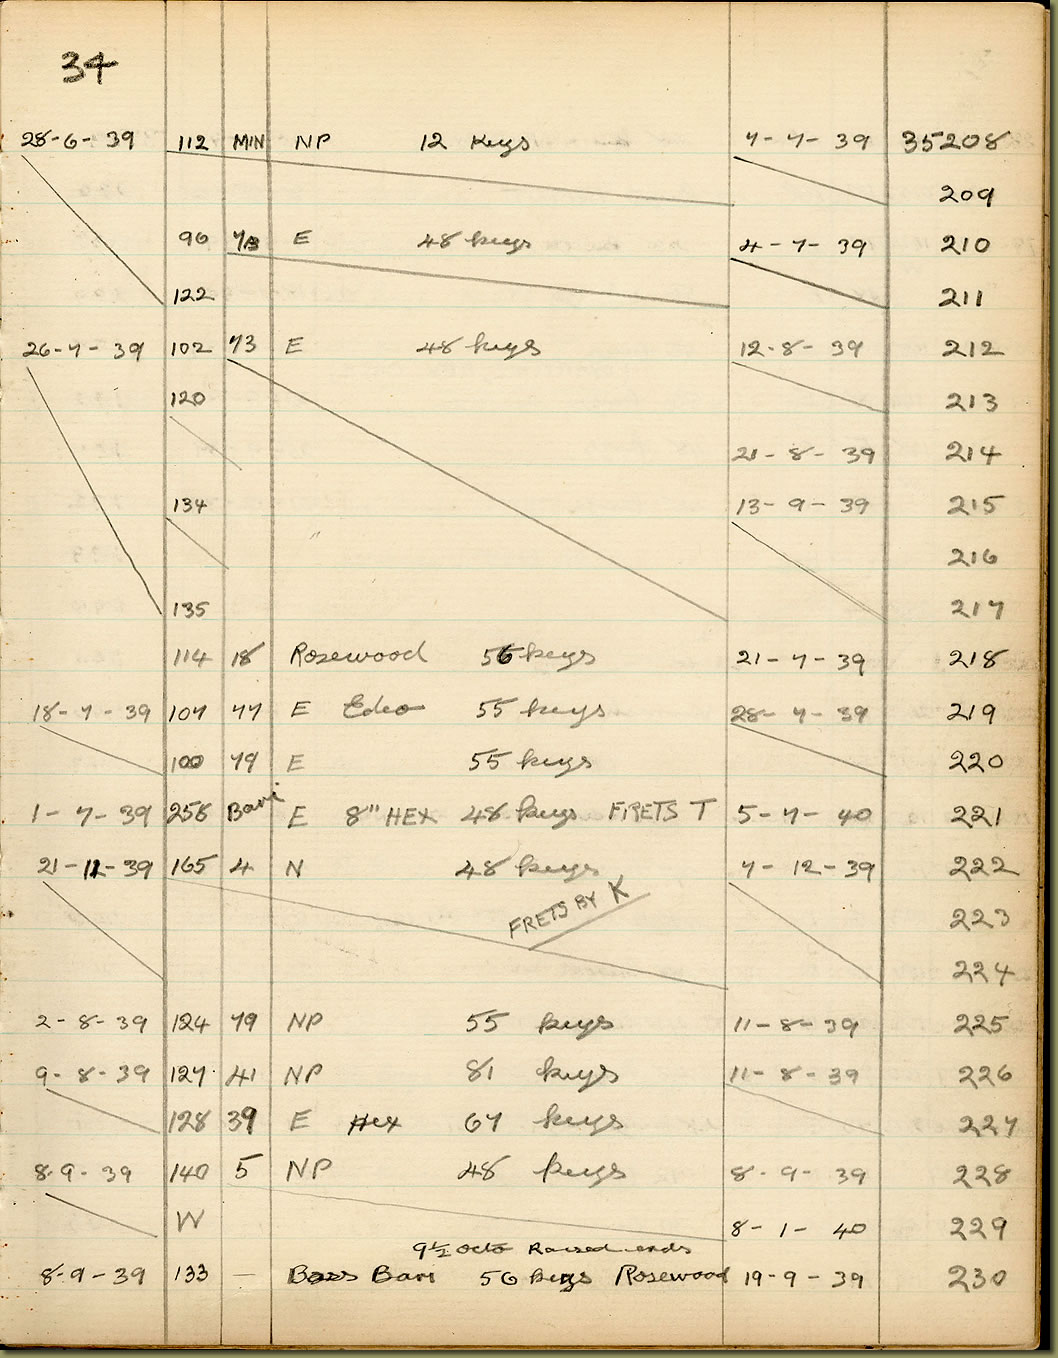 34
28-6-39 112 MIN NP 12 Keys 7-7-39 35208
209
96 7B E 48 keys 4-7-39 210
122 211
26-7-39 102 73 E 48 keys 12-8-39 212
120 213
21-8-39 214
134 13-9-39 215
216
135 217
114 18 Rosewood 56 keys 21-7-39 218
18-7-39 107 77 E Edeo 55 keys 28-7-39 219
100 79 E 55 keys 220
1-7-39 256 Bari E 8" HEX 48 keys FRETS T 5-7-40 221
21-11-39 165 4 N 48 keys 7-12-39 222
FRETS BY K 223
224
2-8-39 124 79 NP 55 keys 11-8-39 225
9-8-39 127 41 NP 81 keys 11-8-39 226
128 39 E Hex 67 keys 227
8-9-39 140 5 NP 48 keys 8-9-39 228
W 8-1-40 229
9½ octo Raised ends
8-9-39 133 — Bass Bari 56 keys Rosewood 19-9-39 230